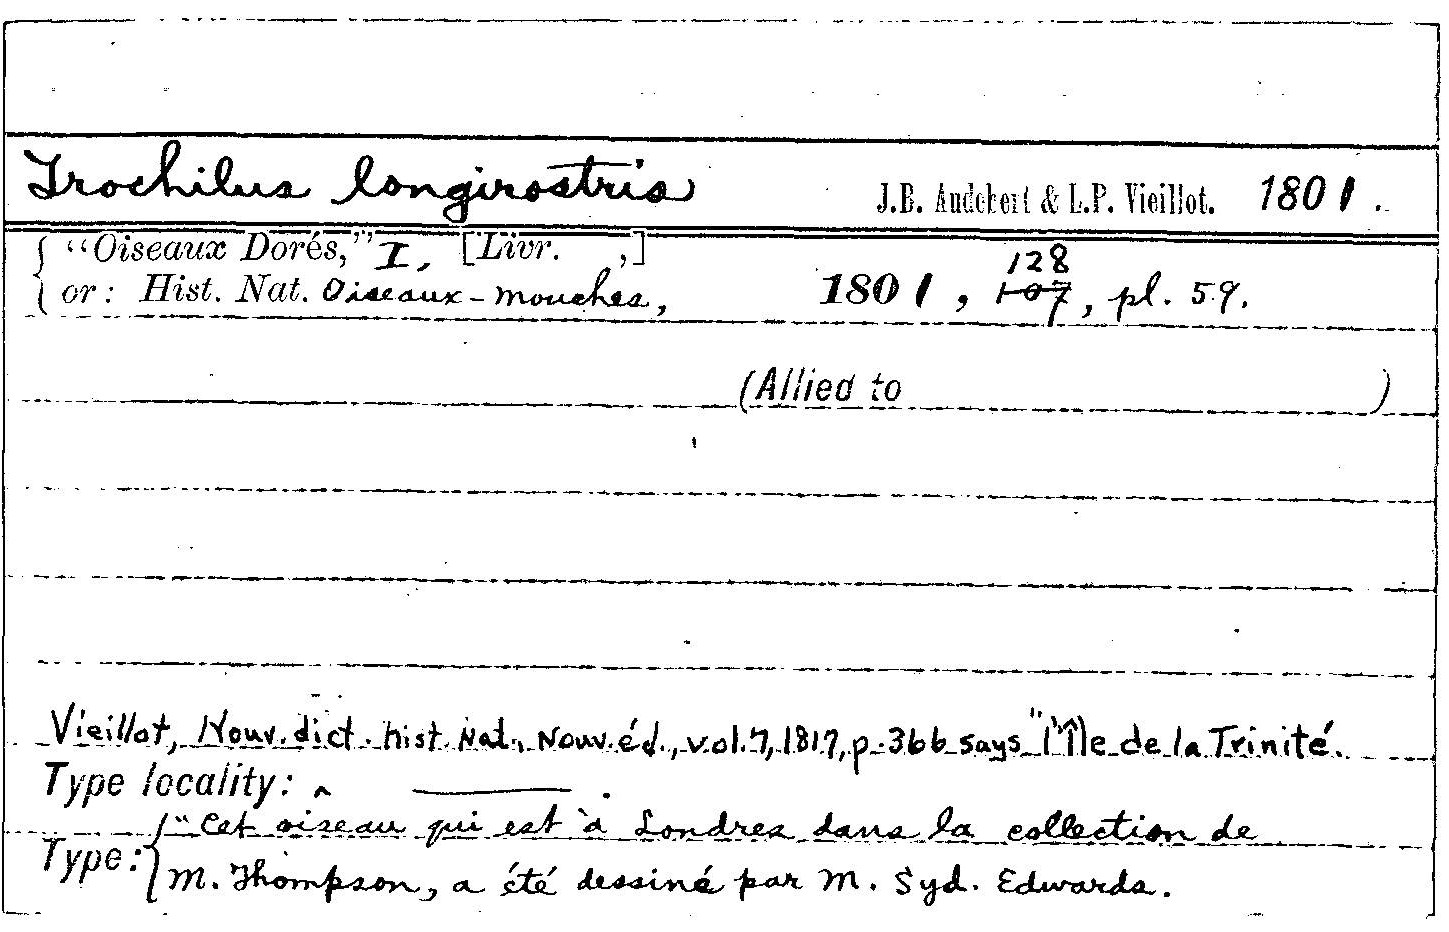 Trochilus longirostris J.B. Audebert & L.P. Vieillot. 1801.
"Oiseaux Dorés," I, [Livr. ,]
128
or: Hist. Nat. Oiseaux-mouches, 1801, 107, pl. 59.
(Allied to )
Vieillot, Nouv. dict. hist. Nat., Nouv. éd., vol. 7, 1817, p. 366 says "l'Île de la Trinité.
Type locality: ^ —— .
"Cet oiseau qui est à Londres dans la collection de
Type: M. Thompson, a été dessiné par M. Syd. Edwards.